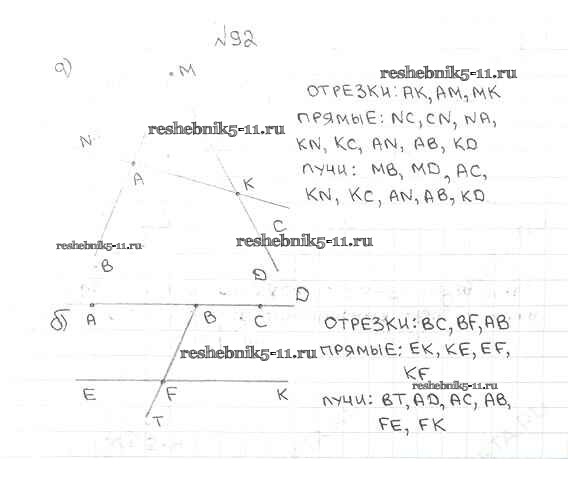 №92
а)
M
reshebnik5-11.ru
ОТРЕЗКИ: AK, AM, MK
reshebnik5-11.ru
ПРЯМЫЕ: NC, CN, NA,
KN, KC, AN, AB, KD
N
A
ЛУЧИ: MB, MD, AC,
K
KN, KC, AN, AB, KD
C
reshebnik5-11.ru
reshebnik5-11.ru
B
D
D
б)
A
B
C
ОТРЕЗКИ: BC, BF, AB
reshebnik5-11.ru
ПРЯМЫЕ: EK, KE, EF,
KF
reshebnik5-11.ru
E
F
K
ЛУЧИ: BT, AD, AC, AB,
T
FE, FK